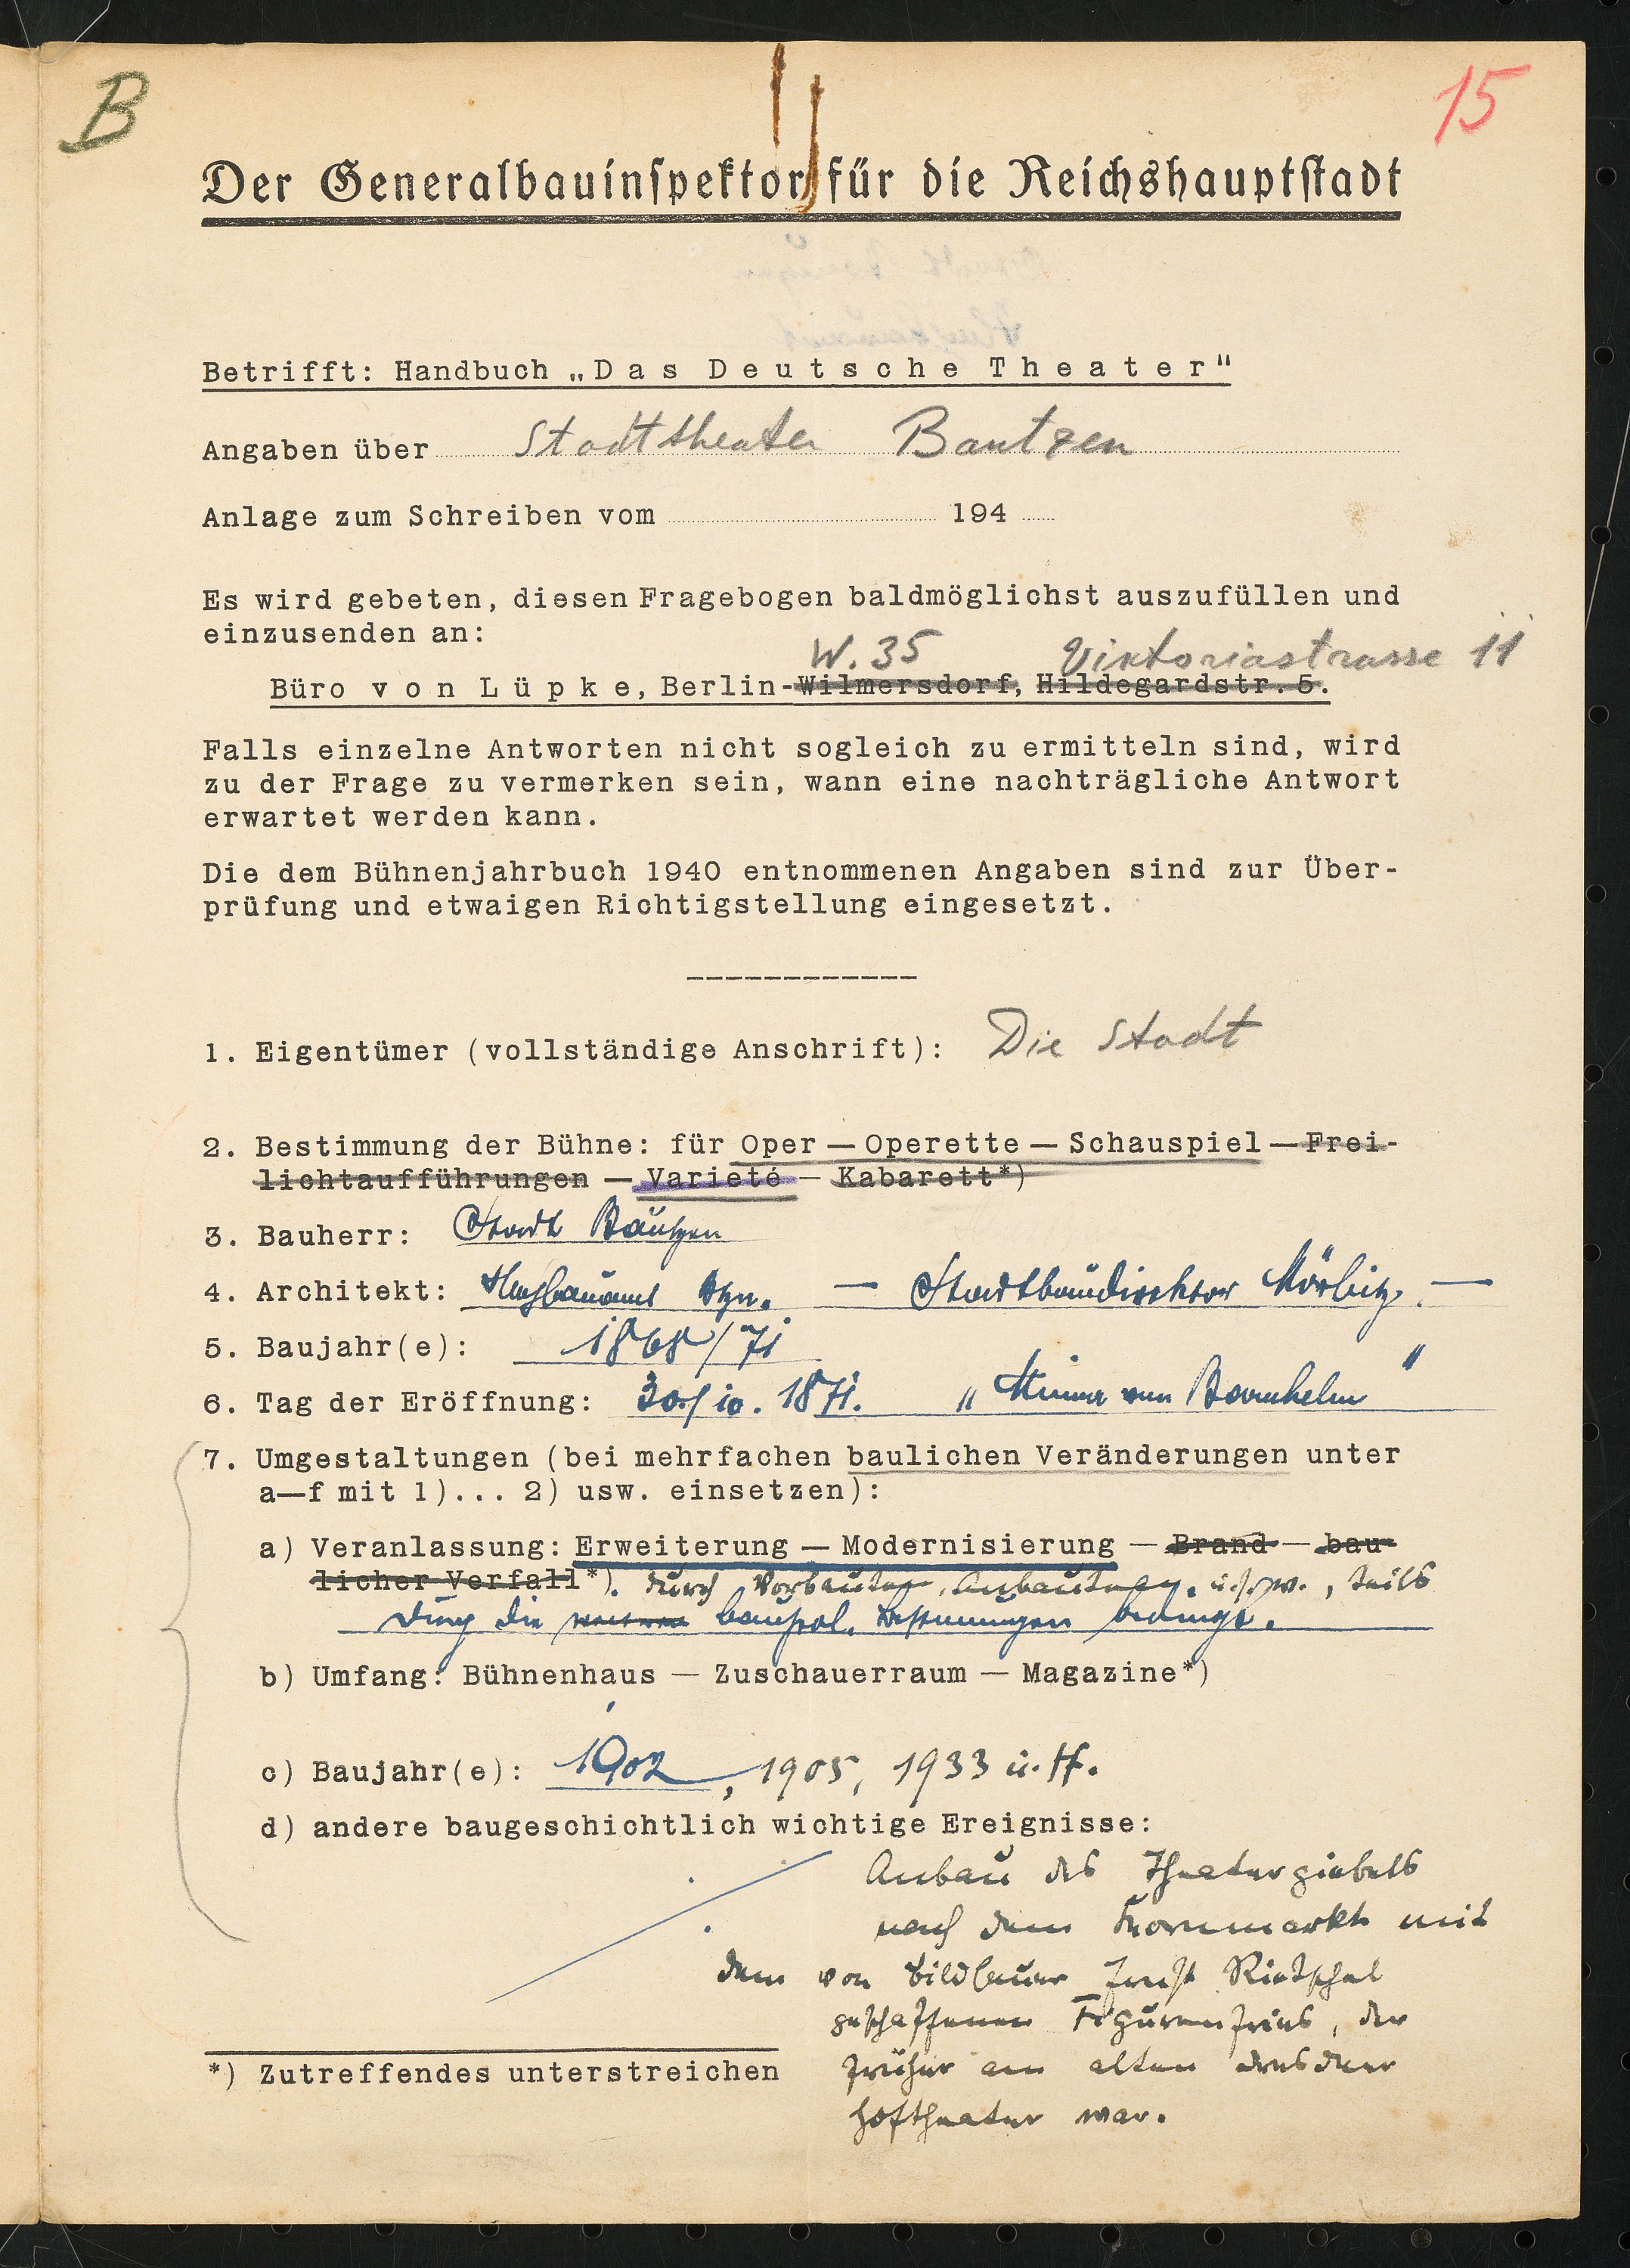 B
15
Der Generalbauinspektor für die Reichshauptstadt
Betrifft: Handbuch „Das Deutsche Theater"
Angaben über Stadttheater Bautzen
Anlage zum Schreiben vom 194
Es wird gebeten, diesen Fragebogen baldmöglichst auszufüllen und
einzusenden an:
W. 35 Viktoriastrasse 11
Büro von Lüpke, Berlin-Wilmersdorf, Hildegardstr. 5.
Falls einzelne Antworten nicht sogleich zu ermitteln sind, wird
zu der Frage zu vermerken sein, wann eine nachträgliche Antwort
erwartet werden kann.
Die dem Bühnenjahrbuch 1940 entnommenen Angaben sind zur Über-
prüfung und etwaigen Richtigstellung eingesetzt.
------------
1. Eigentümer (vollständige Anschrift): Die Stadt
2. Bestimmung der Bühne: für Oper — Operette — Schauspiel — Frei-
lichtaufführungen — Varieté — Kabarett*)
3. Bauherr: Stadt Bautzen
4. Architekt: Hochbauamt Btzn. — Stadtbaudirektor Mörbitz. —
5. Baujahr(e): 1868/71
6. Tag der Eröffnung: 30./10. 1871. „Minna von Barnhelm"
7. Umgestaltungen (bei mehrfachen baulichen Veränderungen unter
a—f mit 1)... 2) usw. einsetzen):
a) Veranlassung: Erweiterung — Modernisierung — Brand — bau-
licher Verfall*). durch Vorbauten, Anbauten, u.s.w., teils
durch die baupol. bedingt.
b) Umfang: Bühnenhaus — Zuschauerraum — Magazine*)
c) Baujahr(e): 1902, 1905, 1933 u. ff.
d) andere baugeschichtlich wichtige Ereignisse:
Anbau des Theatergiebels
nach dem Kornmarkt mit
dem von Bildhauer Ernst Rietschel
geschaffenen Figurenfries, der
früher am alten Dresdner
Hoftheater war.
*) Zutreffendes unterstreichen